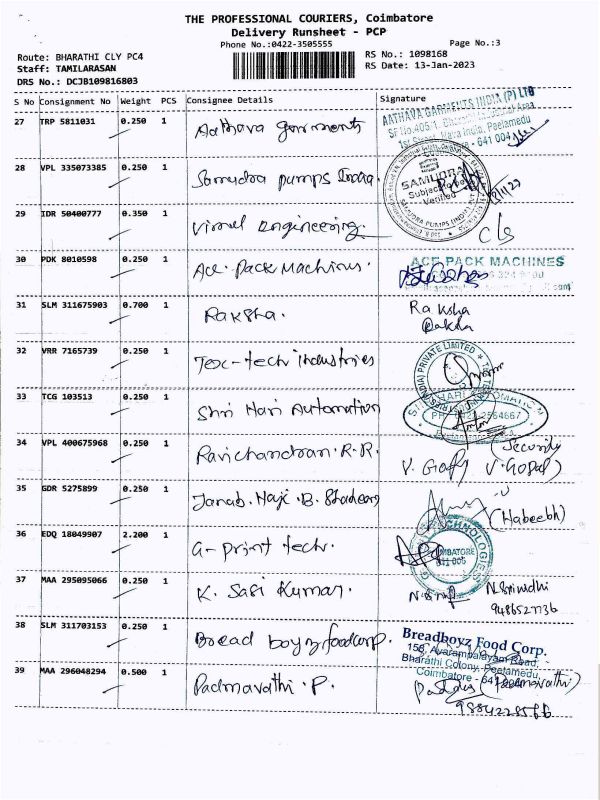 THE PROFESSIONAL COURIERS, Coimbatore
Delivery Runsheet - PCP
Phone No.:0422-3505555 Page No.:3
Route: BHARATHI CLY PC4 RS No.: 1098168
Staff: TAMILARASAN RS Date: 13-Jan-2023
DRS No.: DCJB109816803
S No Consignment No Weight PCS Consignee Details Signature
27 TRP 5811031 0.250 1 Aathava Garments AATHAVA GARMENTS INDIA (P) LTD
1st Street, Peelamedu
641 004
28 VPL 335073385 0.250 1 Samudra pumps India. SAMUDRA
Subject to
Verified
SAMUDRA PUMPS (INDIA)
29 IDR 50400777 0.350 1 Vimal Engineering.
30 PDK 8010598 0.250 1 Ace. Pack Machines. ACE PACK MACHINES
31 SLM 311675903 0.700 1 Raksha. Raksha
Raksha
32 VRR 7165739 0.250 1 Tex-tech industries (INDIA) PRIVATE LIMITED
33 TCG 103513 0.250 1 Shri Hari Automation
34 VPL 400675968 0.250 1 Ravichandran. R.R. (Security
V. Gopal)
35 GDR 5275899 0.250 1 Janab. Haji. B. (Habeebh)
36 EDQ 18049907 2.200 1 G-print tech. TECHNOLOGIES
COIMBATORE
641 005
37 MAA 295095066 0.250 1 K. Sasi Kumar. N.Srinidhi
9486527736
38 SLM 311703153 0.250 1 Bread boyz foodcorp. Breadboyz Food Corp.
Avarampalayam Road,
Bharathi Colony, Peelamedu,
Coimbatore - 641
39 MAA 296048294 0.500 1 Padmavathi. P. (Padmavathi)